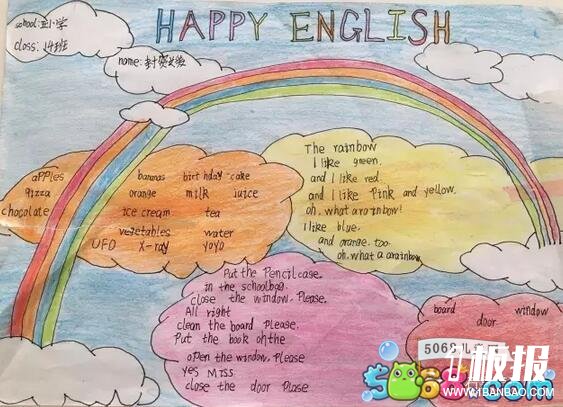 HAPPY ENGLISH
school:
class: 14班
name:
apples bananas birthday cake
pizza orange milk juice
chocolate ice cream tea
vegetables water
UFO X-ray yoyo
The rainbow
I like green,
and I like red.
and I like Pink and yellow.
oh, what a rainbow!
I like blue,
and orange. too.
oh. what a arainbow.
Put the Pencilcase.
in the schoolbag.
close the window. Please.
All right
clean the board Please.
Put the book on the
open the window, Please
yes Miss
close the door Please
board window
door
5068儿
板报
5068.com
WWW.1BANBAO.COM